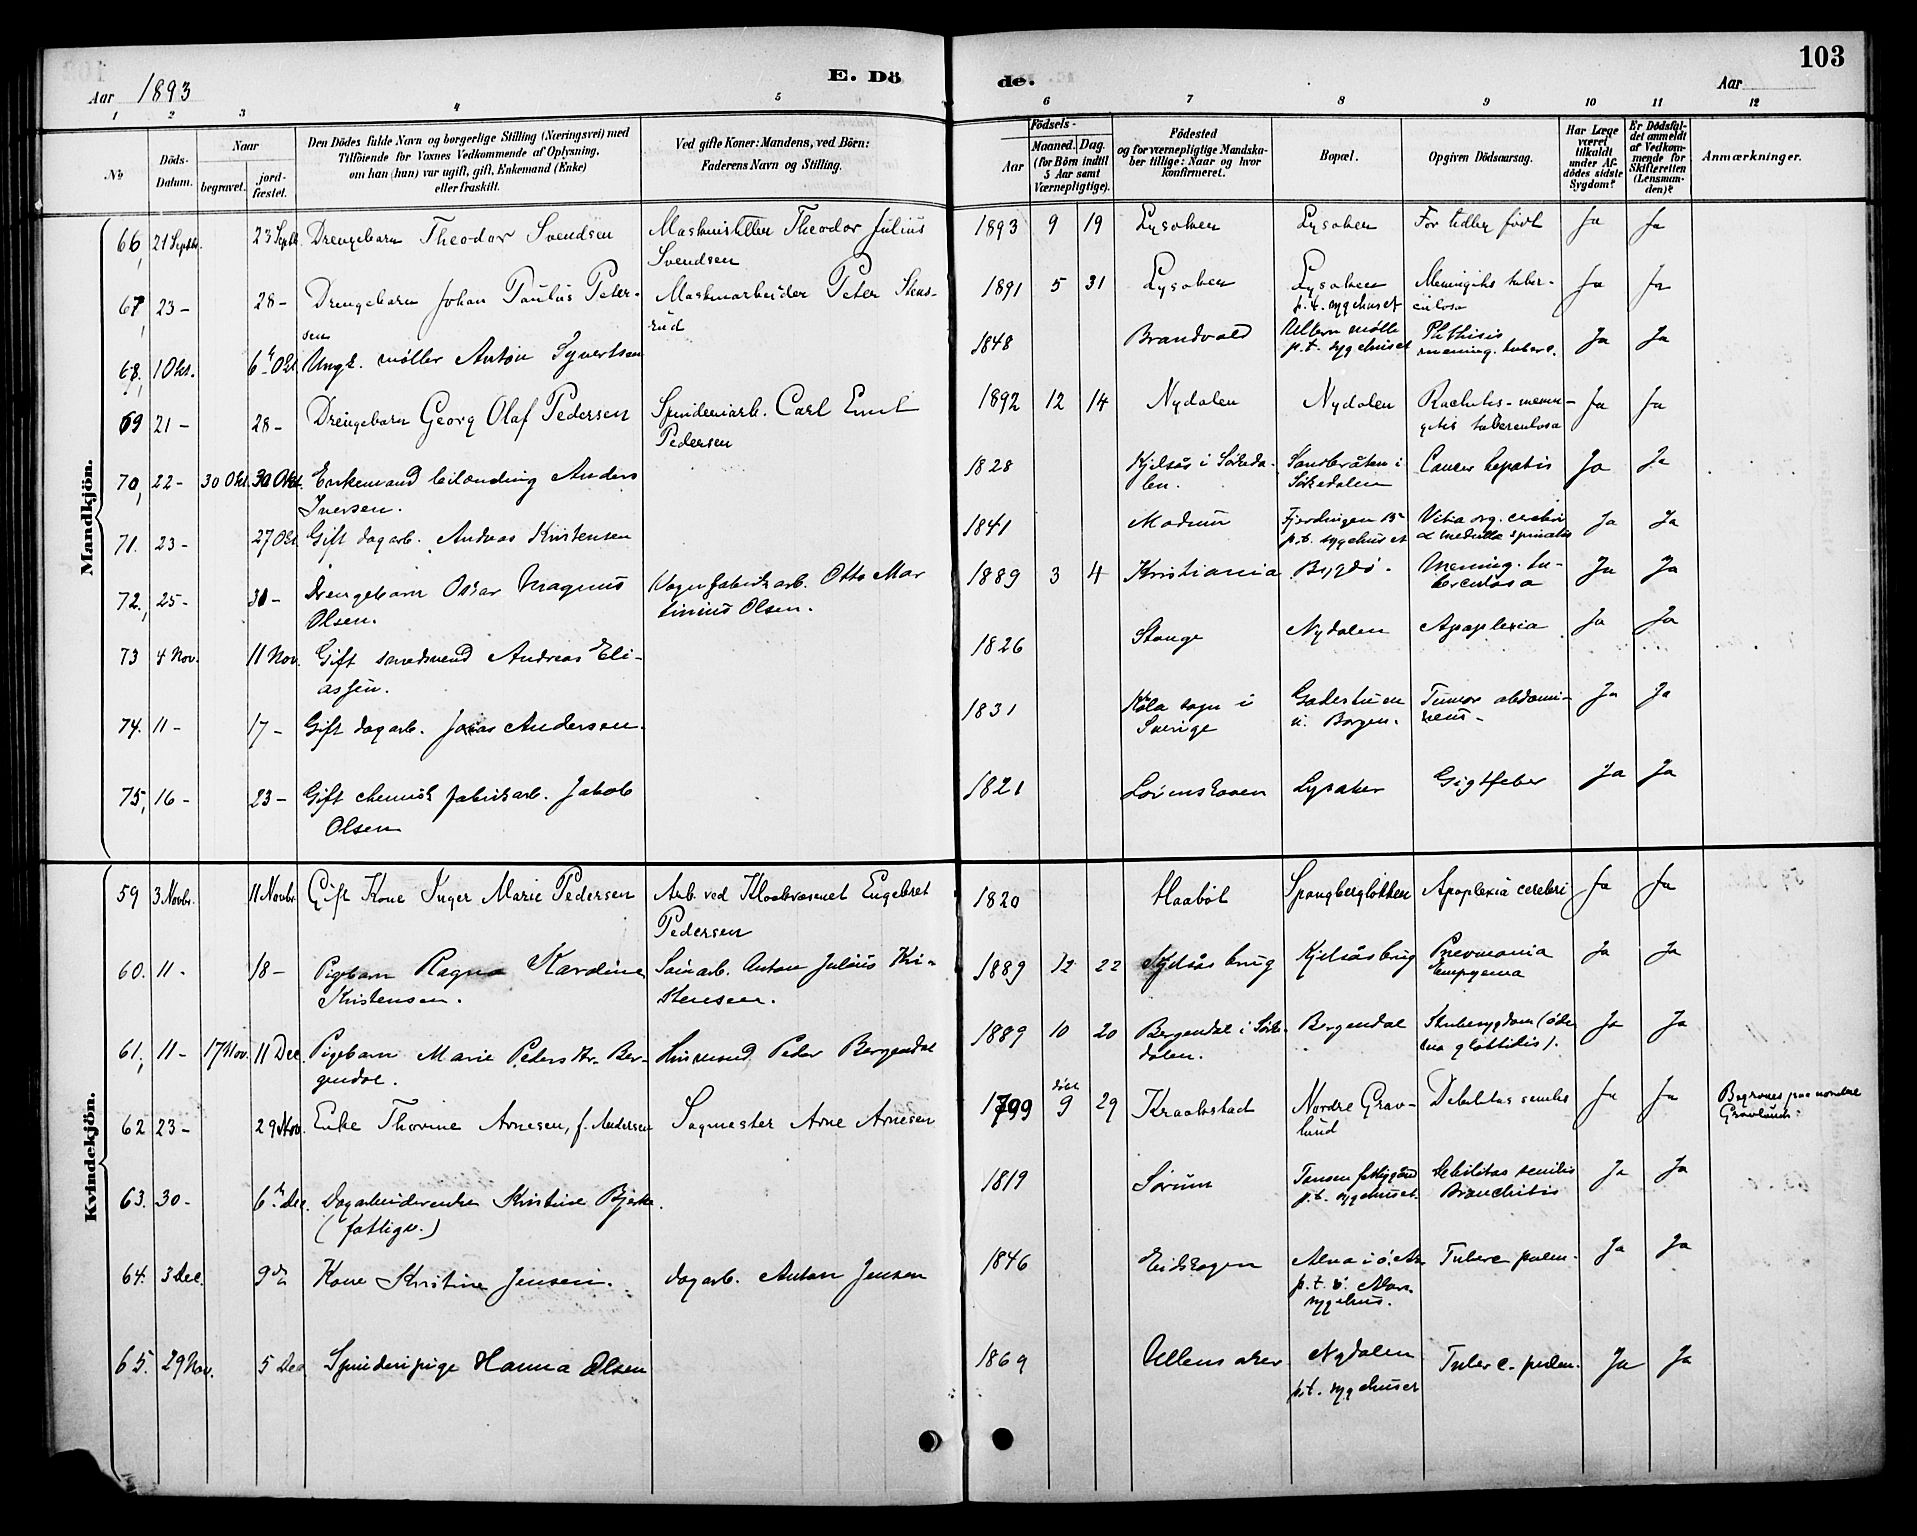 Aar 1893
E. Dö
de.
Aar
103
1 2 3 4 5 6 7 8 9 10 11 12
No
Döds-Datum.
Naar begravet. jordfæstet.
Den Dödes fulde Navn og borgerlige Stilling (Næringsvei) med Tilföiende for Voxnes Vedkommende af Oplysning, om han (hun) var ugift, gift, Enkemand (Enke) eller fraskilt.
Ved gifte Koner: Mandens, ved Börn: Faderens Navn og Stilling.
Födsels-
Aar Maaned. Dag. (for Börn indtil 5 Aar samt Værnepligtige).
Födested og for værnepligtige Mandskaber tillige: Naar og hvor konfirmeret.
Bopæl.
Opgiven Dödsaarsag.
Har Læge været tilkaldt under Afdödes sidste Sygdom?
Er Dödsfaldet anmeldt af Vedkommende for Skifteretten (Lensmanden)?
Anmærkninger.
Mandkjön.
66, 21 Septbr. 23 Septbr. Drengebarn Theodor Svendsen Theodor Julius Svendsen 1893 9 19 Lysaker Lysaker For tidlig født Ja Ja
67, 23 - 28 - Drengebarn Johan Paulus Petersen Maskinarbeider Peter Stensrud 1891 5 31 Lysaker Lysaker p.t. sygehuset Meningitis tuberculosa Ja Ja
68, 1 Okt. 6 Okt Ungk. møller Anton Syvertsen 1848 Brandvold Ullern mølle p.t. sygehuset Phthisis mening. tuberc. Ja Ja
69 21 - 28 - Drengebarn Georg Olaf Pedersen Spinderiarb. Carl Emil Pedersen 1892 12 14 Nydalen Nydalen Rachitis - meningitis tuberculosa Ja Ja
70, 22 - 30 Okt. 30 Okt. Enkemand leilænding Anders Iversen. 1828 Kjelsås i Sørkedalen. Sandbråten i Sørkedalen Cancer hepatis Ja Ja
71. 23 - 27 Okt Gift dagarb. Andreas Kristensen 1841 Modum Fjerdingen p.t. sygehuset Vitia org. cerebri & medulla spinalis Ja Ja
72, 25 - 31 - Drengebarn Oskar Magnus Olsen. Vognfabrikarb. Otto Martinius Olsen. 1889 3 4 Kristiania Bygdø. Mening. tuberculosa Ja Ja
73 4 Nov. 11 Nov. Gift Andreas Eliassen. 1826 Stange Nydalen Apoplexia Ja Ja
74. 11 - 17 - Gift dagarb. Jonas Anderson. 1831 Køla sogn i Sverige Gadestuen u. Borgen. Tumor abdominens - Ja Ja
75, 16 - 23 - Gift chemisk fabrikarb. Jakob Olsen 1821 Lørenskoven Lysaker Gigtfeber Ja Ja
Kvindekjön.
59 3 Novbr. 11 Novbr Gift Kone Inger Marie Pedersen Arb. ved Kloakvæsenet Engebret Pedersen 1820 Haabøl Spangbergløkken Apoplexia cerebri Ja Ja
60. 11 - 18 - Pigebarn Ragna Kardine Kristensen. Anton Julius Kristensen. 1889 12 22 Kjelsås brug Kjelsås brug Pnevmonia Empyema Ja Ja
61, 11 - 17 Nov. 11 Dec. Pigebarn Marie Pedersdtr. Bergendal. Husmand Peder Bergendal 1889 10 20 Bergendal i Sørkedalen. Bergendal Strubesygdom (ødema glottidis). Ja Ja
62 23 - 29 Nov. Enke Thorine Arnesen, f. Andersen Sagmester Arne Arnesen 1799 døbt 9 29 Kraakstad Nordre Gravlund Debilitas senilis Ja Ja Begraves paa nordre Gravlund.
63. 30 - 6 Dec. Dagarbeiderenke Kristine Bjerke. (fattigv.) 1819 Sørum Tonsen fattiggård p.t. sygehuset. Debilitas senilis Bronchitis Ja Ja
64. 3 Dec. 9 Kone Kristine Jensen. dagarb. Anton Jensen 1846 Eidskogen Alna i ø. Ak. p.t. sygehus. Tuberc. pulm. Ja Ja
65. 29 Nov. 5 Dec Spinderipige Hanna Olsen 1869 Ullensaker Nydalen p.t. sygehuset Tuberc. pulm. Ja Ja